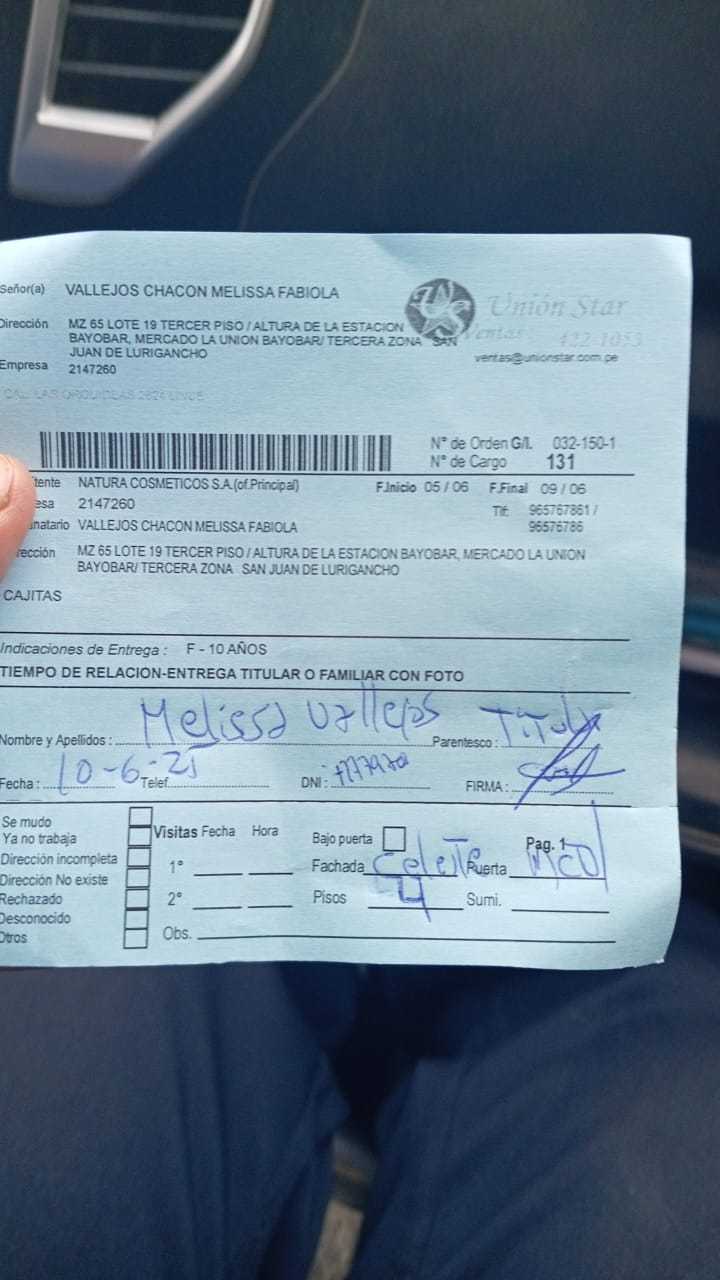 Señor(a) VALLEJOS CHACON MELISSA FABIOLA
Unión Star
Dirección MZ 65 LOTE 19 TERCER PISO / ALTURA DE LA ESTACION
BAYOBAR, MERCADO LA UNION BAYOBAR/ TERCERA ZONA SAN
JUAN DE LURIGANCHO
Ventas 422-1053
ventas@unionstar.com.pe
Empresa 2147260
CAL. LAS ORQUIDEAS 2624 LINCE
N° de Orden G/I. 032-150-1
N° de Cargo 131
tente NATURA COSMETICOS S.A.(of.Principal) F.Inicio 05 / 06 F.Final 09 / 06
esa 2147260 Tlf: 965767861 /
96576786
inatario VALLEJOS CHACON MELISSA FABIOLA
rección MZ 65 LOTE 19 TERCER PISO / ALTURA DE LA ESTACION BAYOBAR, MERCADO LA UNION
BAYOBAR/ TERCERA ZONA SAN JUAN DE LURIGANCHO
CAJITAS
Indicaciones de Entrega : F - 10 AÑOS
TIEMPO DE RELACION-ENTREGA TITULAR O FAMILIAR CON FOTO
Nombre y Apellidos : Melissa Vallejos Parentesco : Titular
Fecha : 10-6-25 Telef. DNI : FIRMA :
Se mudo
Ya no trabaja
Dirección incompleta
Dirección No existe
Rechazado
Desconocido
Otros
Visitas Fecha Hora
1°
2°
Obs.
Bajo puerta Pag. 1
Fachada Celeste Puerta
Pisos 4 Sumi.